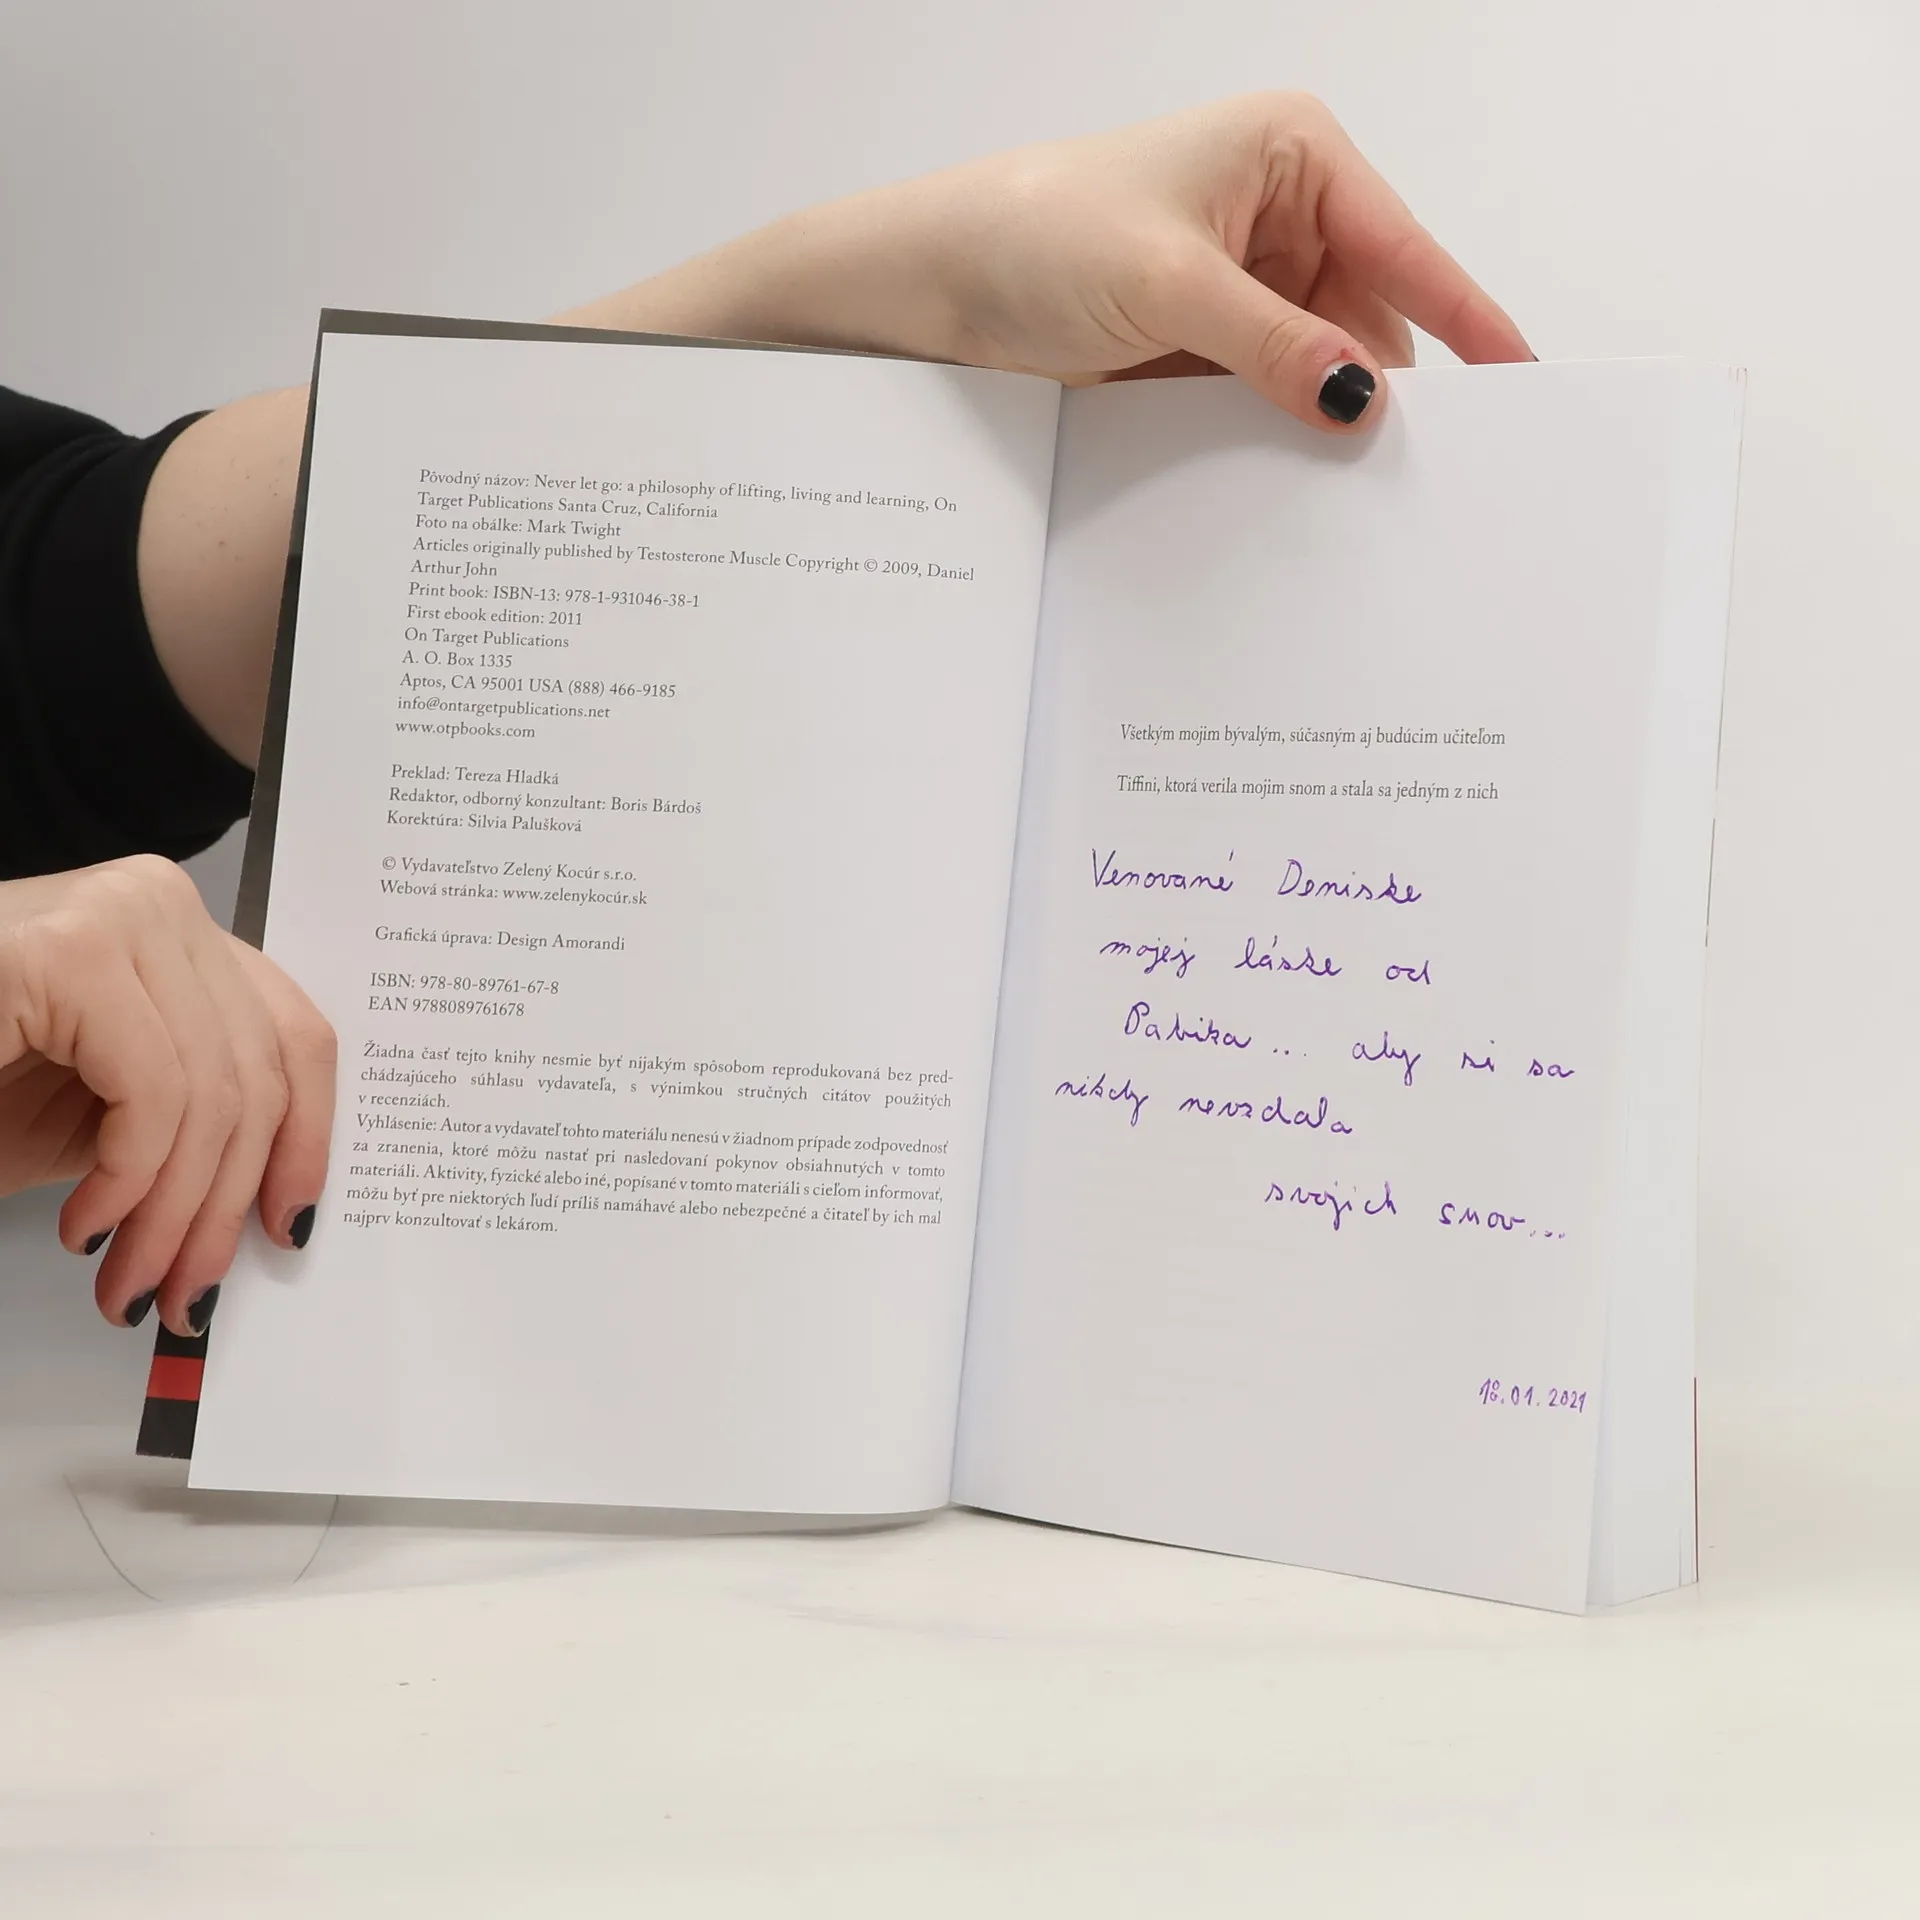 Pôvodný názov: Never let go: a philosophy of lifting, living and learning, On
Target Publications Santa Cruz, California
Foto na obálke: Mark Twight
Articles originally published by Testosterone Muscle Copyright © 2009, Daniel
Arthur John
Print book: ISBN-13: 978-1-931046-38-1
First ebook edition: 2011
On Target Publications
A. O. Box 1335
Aptos, CA 95001 USA (888) 466-9185
info@ontargetpublications.net
www.otpbooks.com
Preklad: Tereza Hladká
Redaktor, odborný konzultant: Boris Bárdoš
Korektúra: Silvia Palušková
© Vydavateľstvo Zelený Kocúr s.r.o.
Webová stránka: www.zelenykocúr.sk
Grafická úprava: Design Amorandi
ISBN: 978-80-89761-67-8
EAN 9788089761678
Žiadna časť tejto knihy nesmie byť nijakým spôsobom reprodukovaná bez pred-
chádzajúceho súhlasu vydavateľa, s výnimkou stručných citátov použitých
v recenziách.
Vyhlásenie: Autor a vydavateľ tohto materiálu nenesú v žiadnom prípade zodpovednosť
za zranenia, ktoré môžu nastať pri nasledovaní pokynov obsiahnutých v tomto
materiáli. Aktivity, fyzické alebo iné, popísané v tomto materiáli s cieľom informovať,
môžu byť pre niektorých ľudí príliš namáhavé alebo nebezpečné a čitateľ by ich mal
najprv konzultovať s lekárom.
Všetkým mojim bývalým, súčasným aj budúcim učiteľom
Tiffini, ktorá verila mojim snom a stala sa jedným z nich
Venované Deniske
mojej láske od
... aby si sa
nikdy nevzdala
svojich snov...
18.01.2021